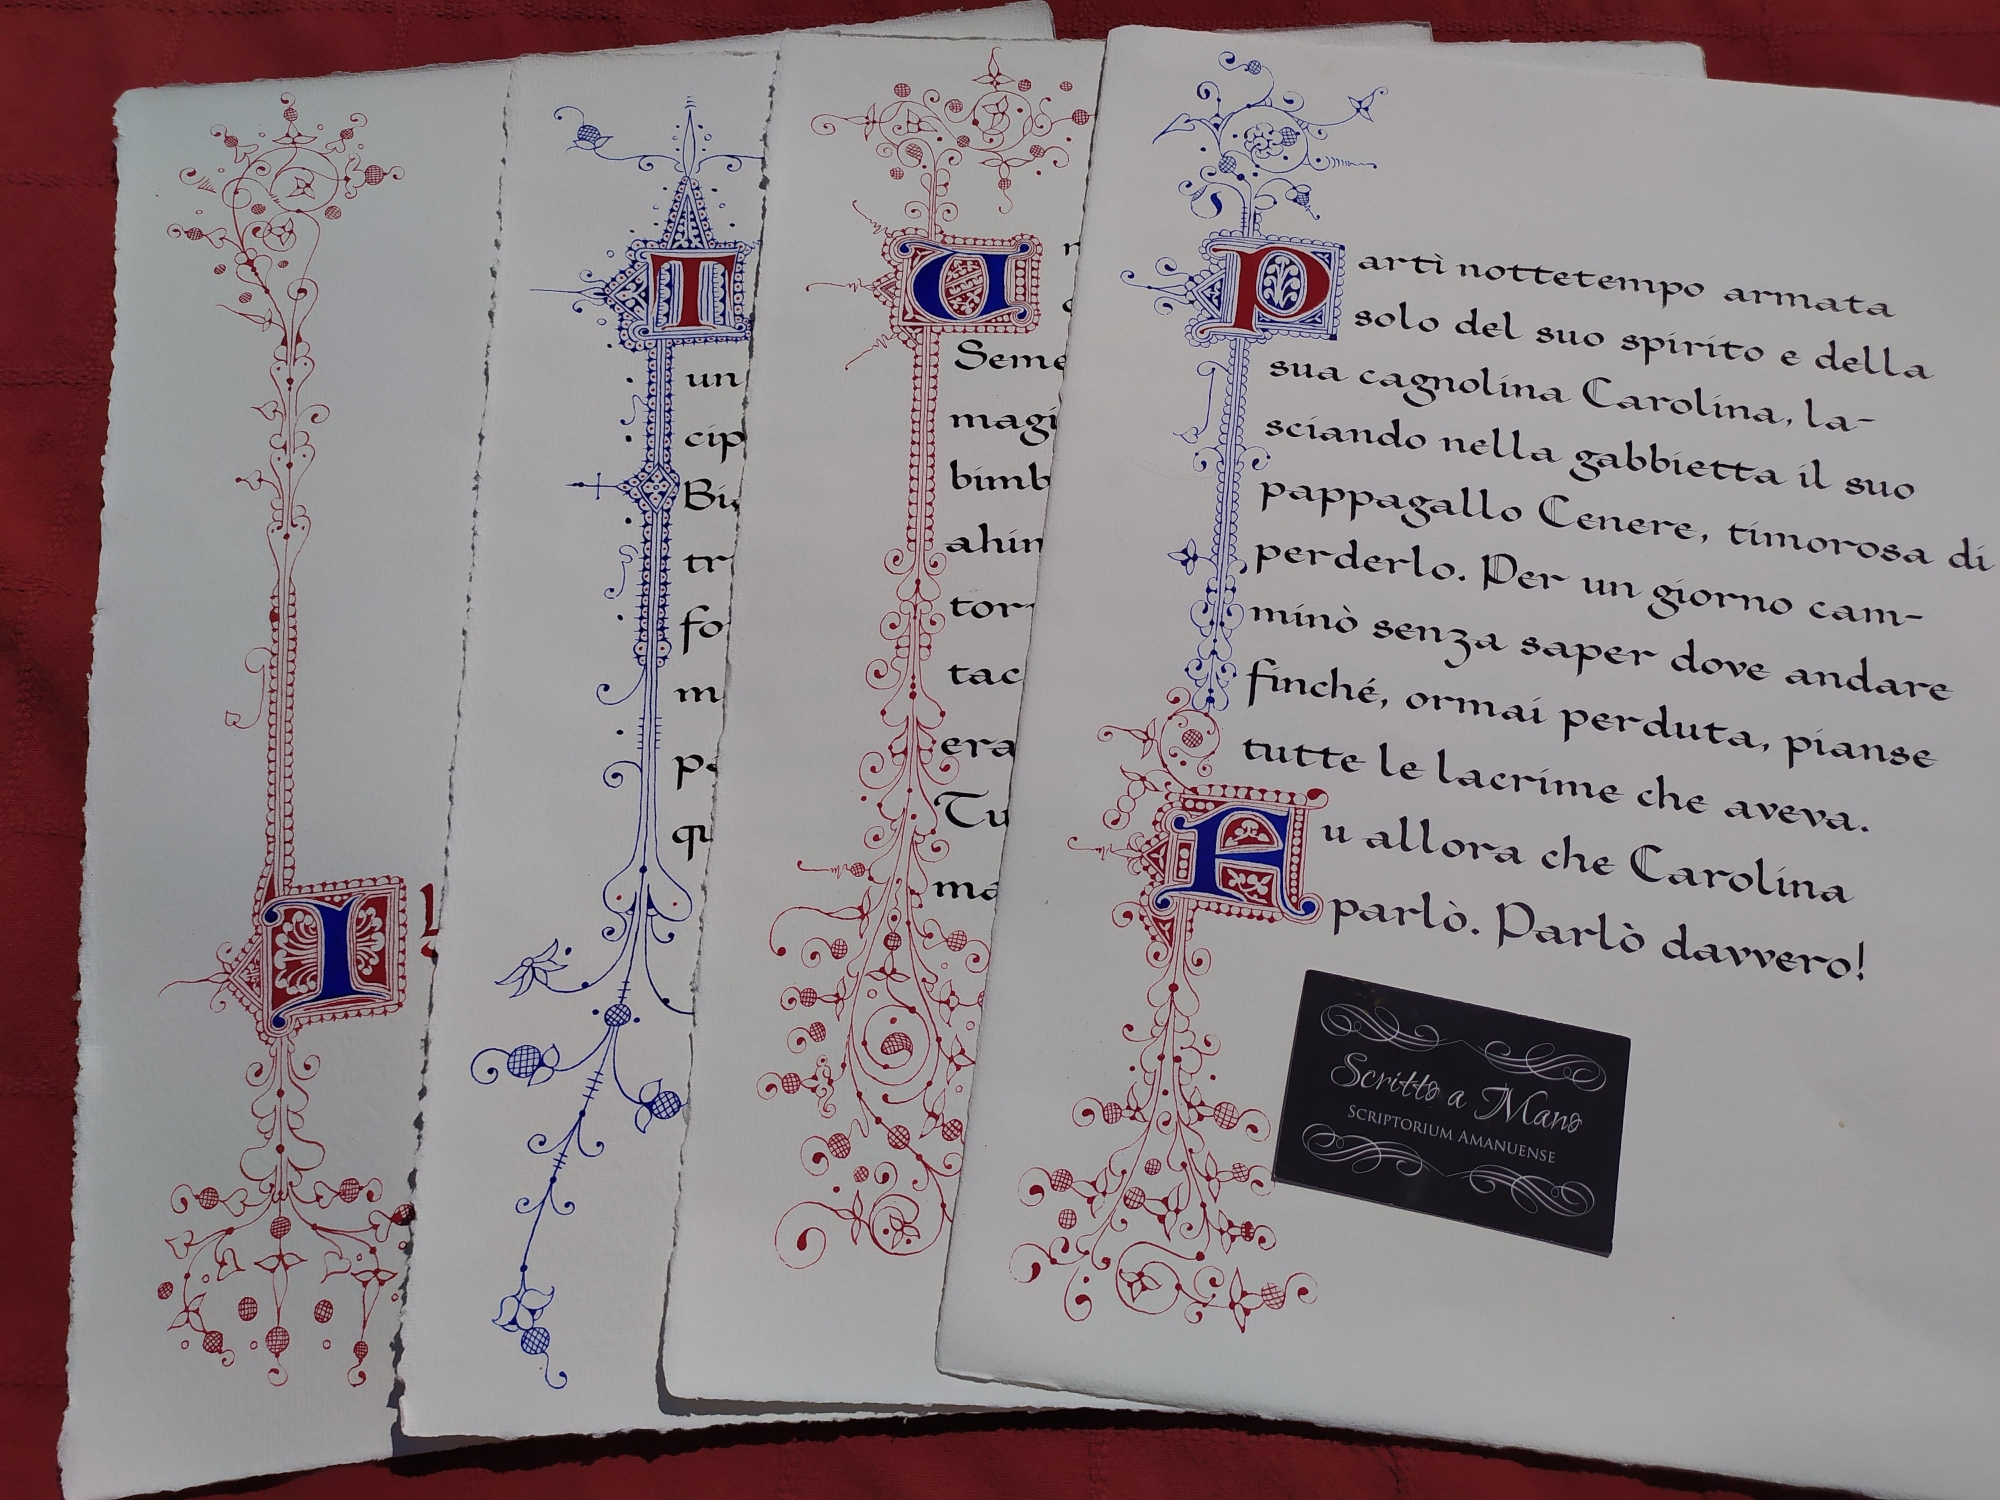 I
T
un
cip
tr
fo
m
qu
U
Seme
magi
bimb
ahim
tor-
tac
era
Tu
ma
Partì nottetempo armata
solo del suo spirito e della
sua cagnolina Carolina, la-
sciando nella gabbietta il suo
pappagallo Cenere, timorosa di
perderlo. Per un giorno cam-
minò senza saper dove andare
finché, ormai perduta, pianse
tutte le lacrime che aveva.
Fu allora che Carolina
parlò. Parlò davvero!
Scritto a Mano
SCRIPTORIUM AMANUENSE